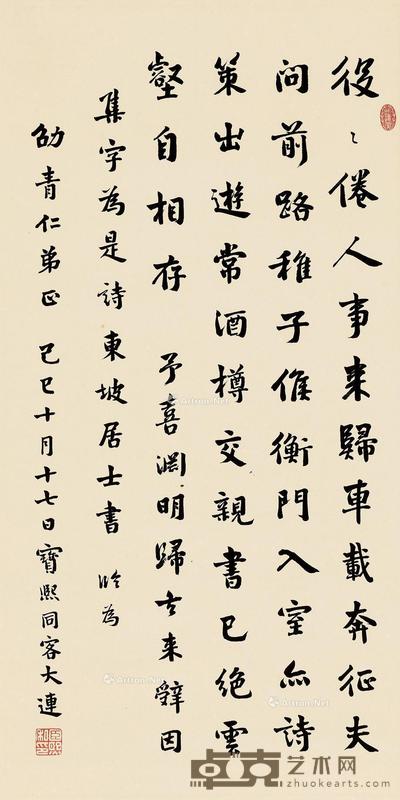 役〻倦人事来歸車載奔征夫
問前路稚子候衡門入室亦詩
策出遊常酒樽交親書已絶雲
壑自相存 予喜淵明歸去来辭因
集字為是詩東坡居士書 臨為
劭青仁弟正 己巳十月十七日寶熙同客大連
Artron.Net
卓克艺术网
zhuokearts.com